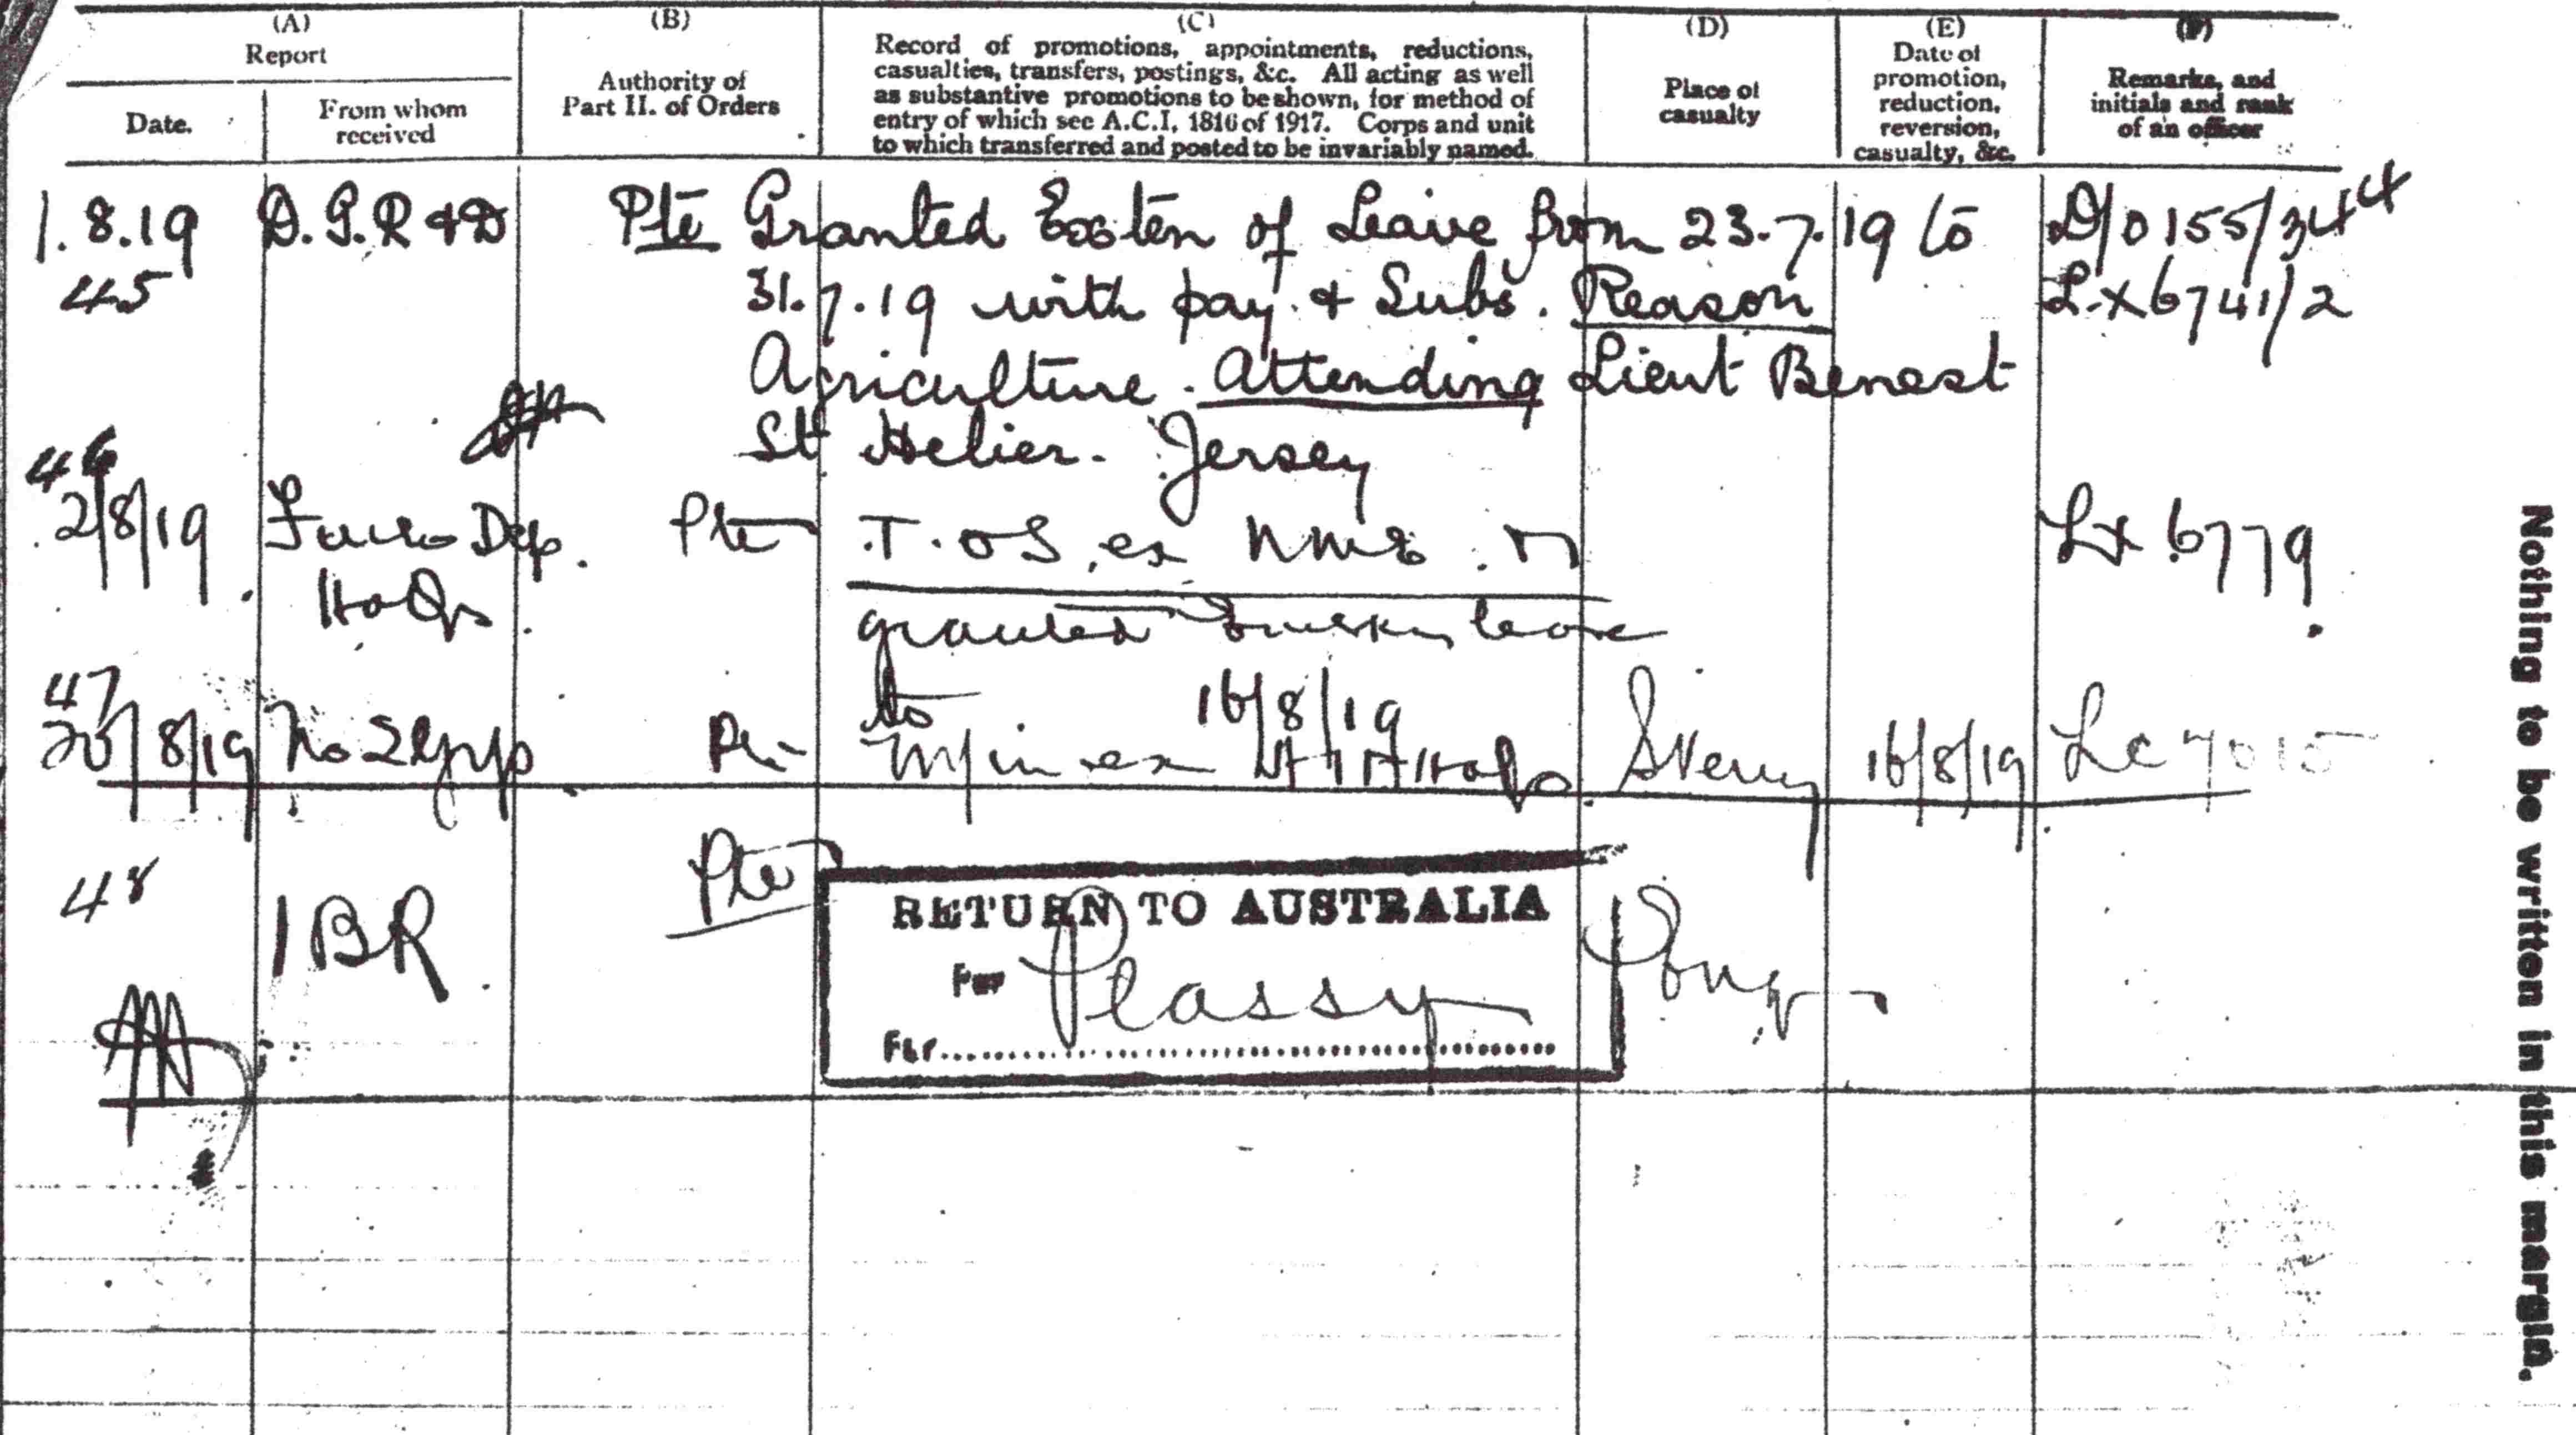 (A)
Report
Date.
From whom
received
(B)
Authority of
Part II. of Orders
(C)
Record of promotions, appointments, reductions,
casualties, transfers, postings, &c. All acting as well
as substantive promotions to be shown, for method of
entry of which see A.C.I. 1816 of 1917. Corps and unit
to which transferred and posted to be invariably named.
(D)
Place of
casualty
(E)
Date of
promotion,
reduction,
reversion,
casualty, &c.
(F)
Remarks, and
initials and rank
of an officer
1.8.19 D.G.R & D Pte Granted Exten of Leave from 23.7.19 to D/o 155/344
45 31.7.19 with pay & Subs. Reason L.X 6741/2
Agriculture. Attending Lieut Benest
St Helier. Jersey
46
2/8/19 Dep. Pte T.O.S, ex LX 6779
Hdqs granted leave
47 to 16/8/19
20/8/19 No 2 Pte M/in ex Hdqs 16/8/19 7015
48 1 BR. Pte
RETURN TO AUSTRALIA
Per Plassy
For
Nothing to be written in this margin.